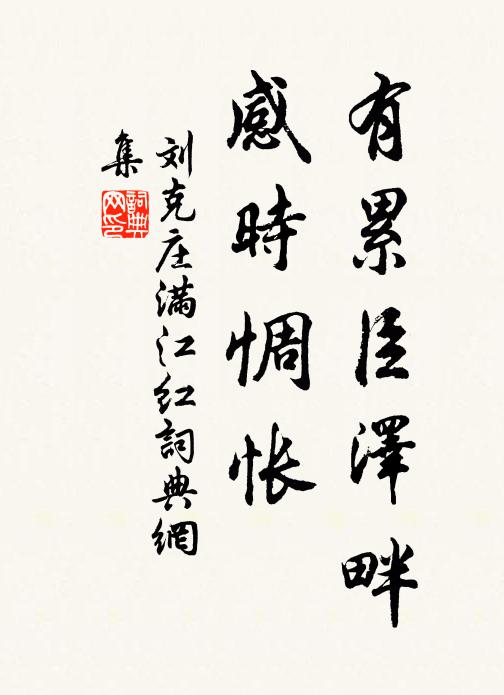 有累臣澤畔
感時惆怅
刘克庄满江红詞典網
集
詞典网印